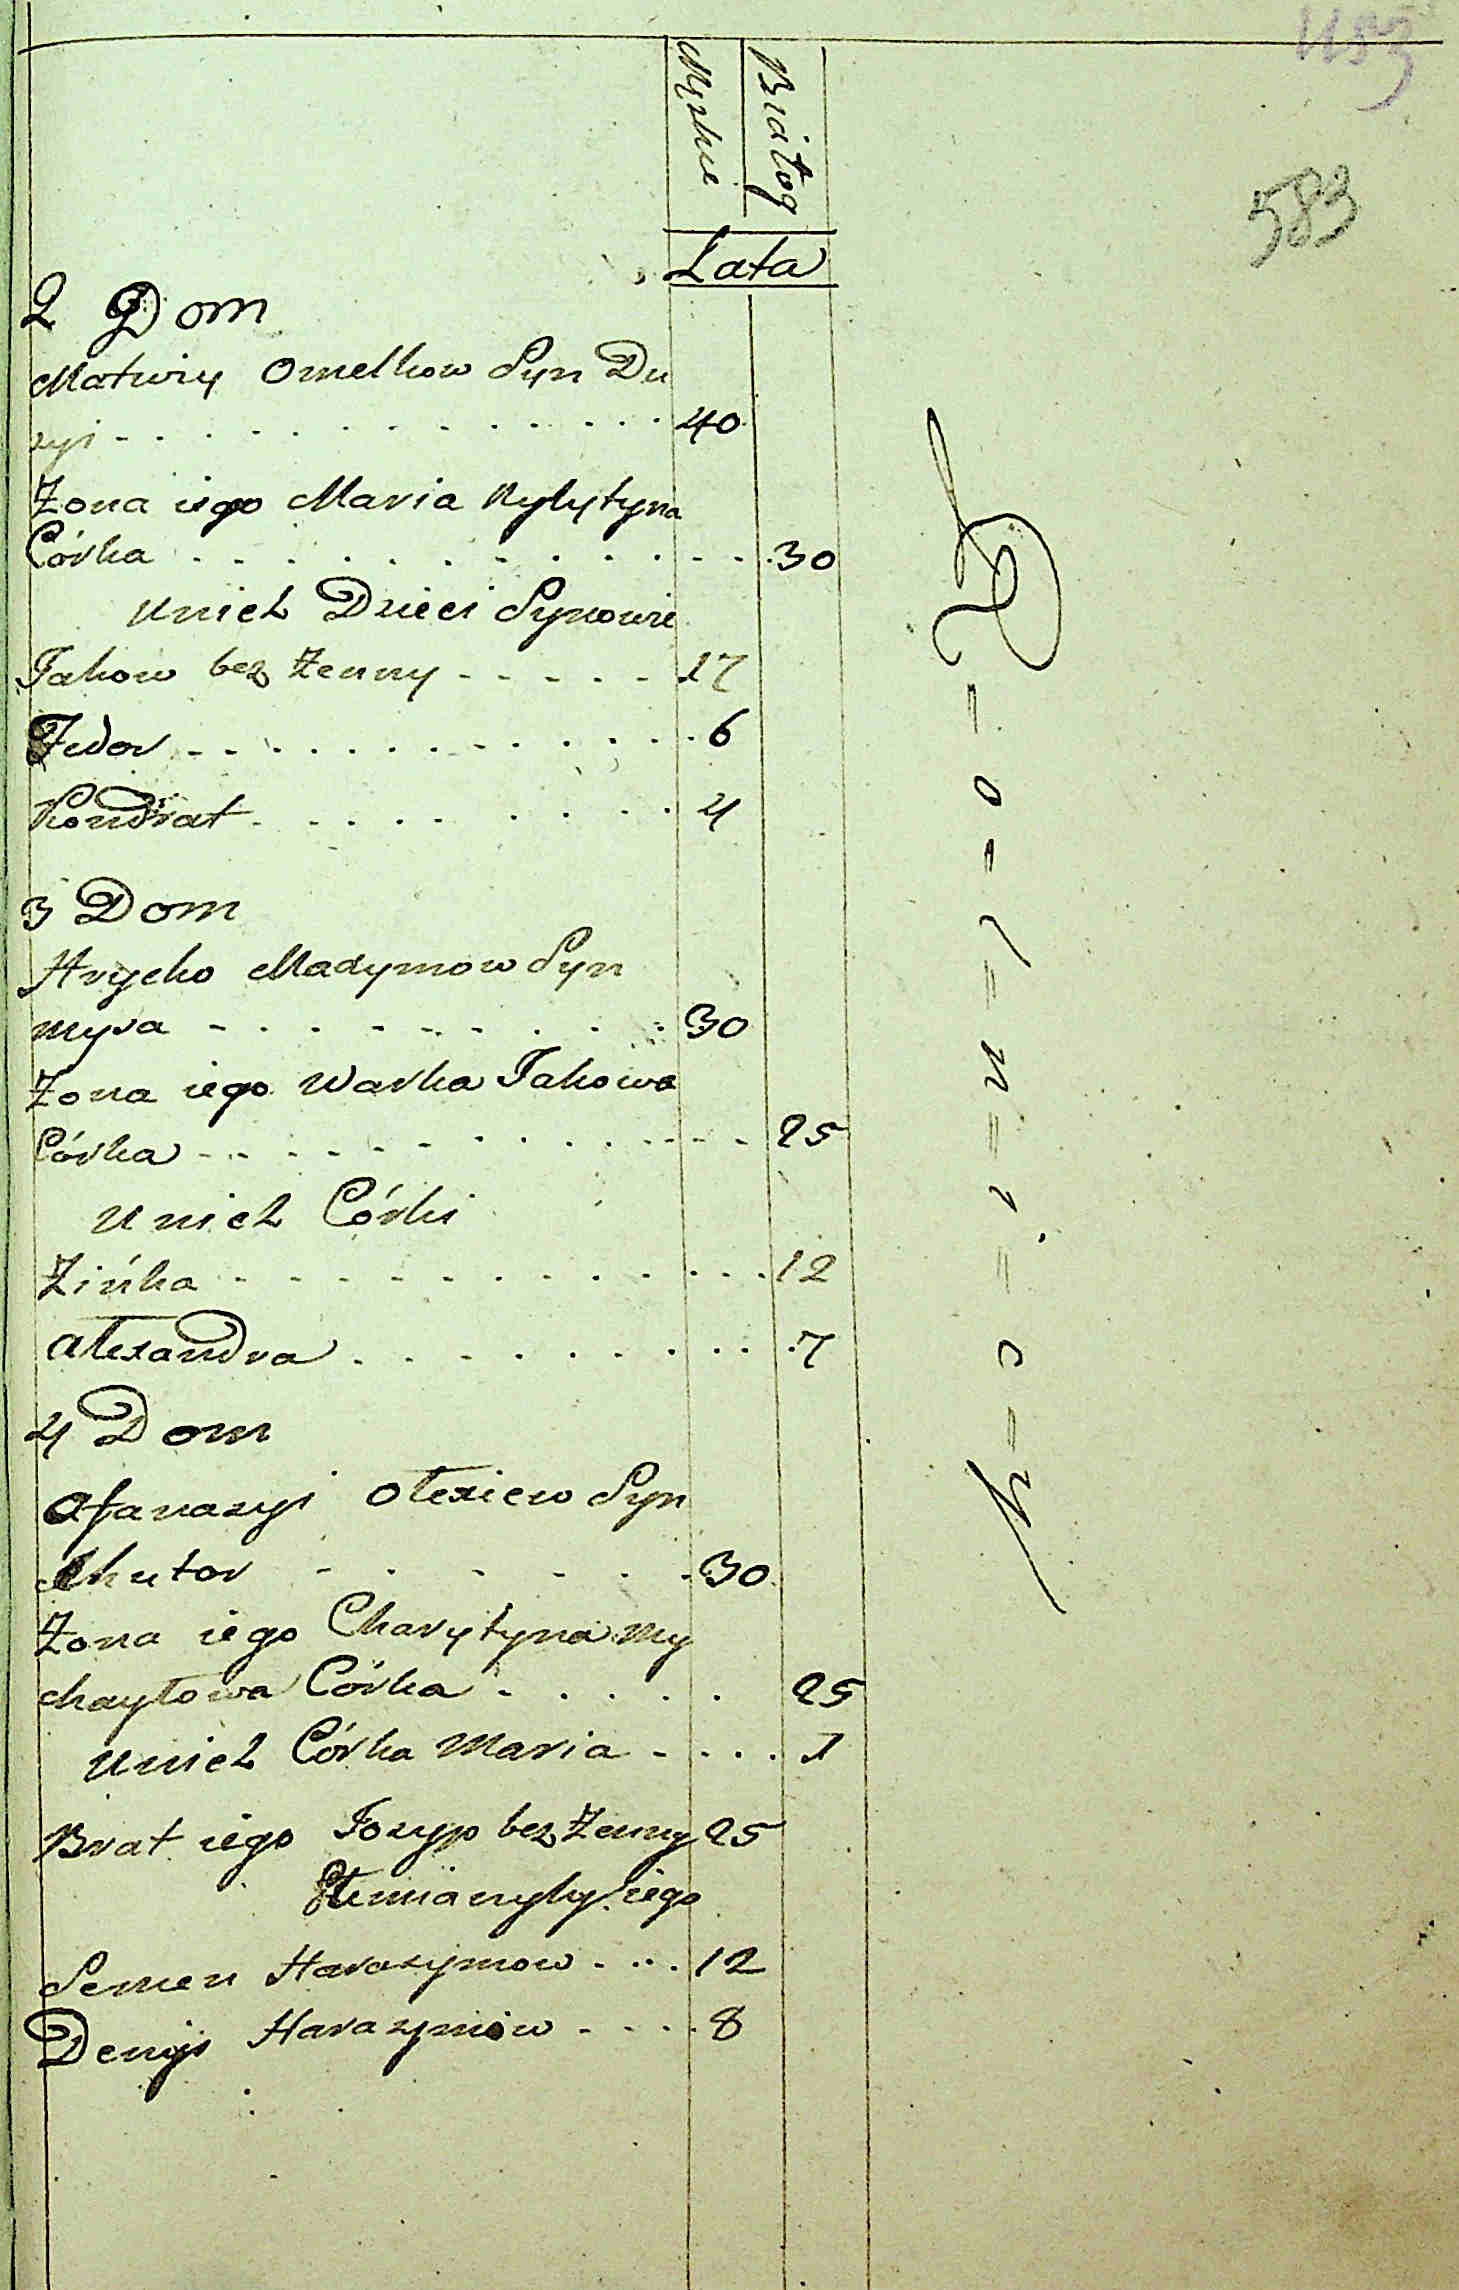 583
Męzkie
Białog
Lata
2 Dom
Matwiy Omelkow Syn Du
zyi - - - - - - - - 40
Żona iego Maria Nykytyna
Córka - - - - - - - - 30
unich Dzieci Synowie
Jakow bez Żenny - - - - - 17
Fedor - - - - - - - - 6
Kondrat - - - - - - - - 4
3 Dom
Hryćko Maxymow Syn
Myra - - - - - - - - 30
Żona iego Warka Jakowa
Córka - - - - - - - - 25
unich Córki
Zińka - - - - - - - - 12
Alexandra - - - - - - - - 7
4 Dom
Afanazyi Olexiew Syn
Chutor - - - - - - - 30
Żona iego Charytyna My
chayłowa Córka - - - - - 25
unich Córka Maria - - - - 1
Brat iego Jozyp bez Żenny 25
Plemianyky iego
Semen Harazymow - - - 12
Denys Harazymow - - - - 8